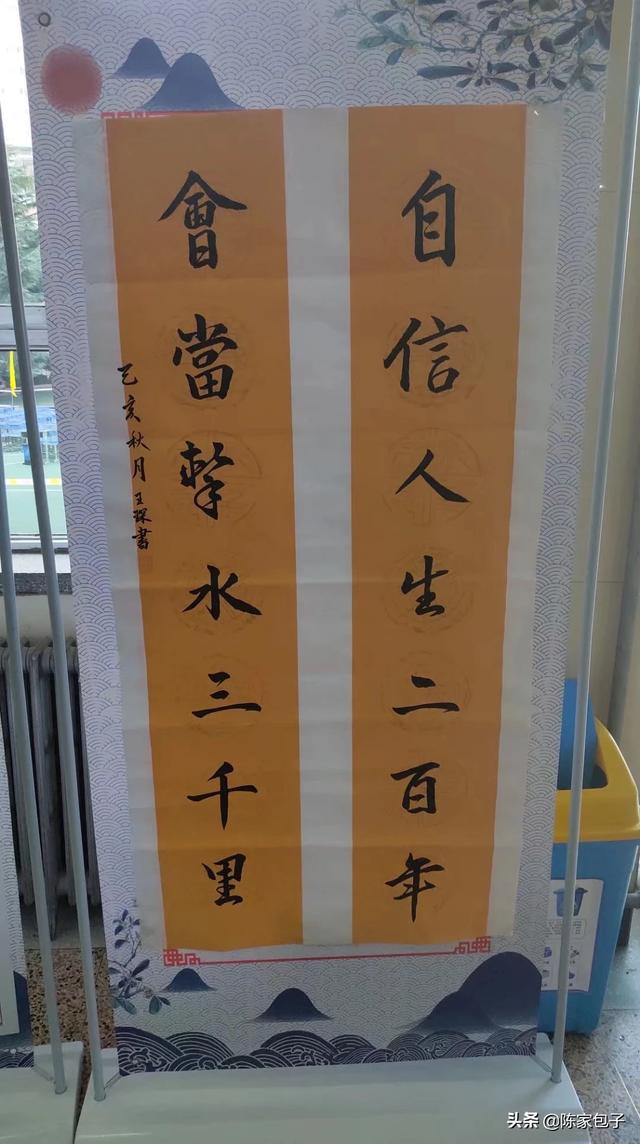 自信人生二百年
會當擊水三千里
乙亥秋月王琛書
头条 @陈家包子